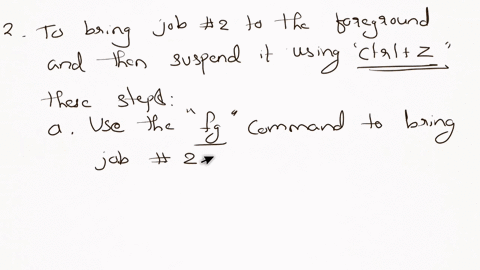 2. To bring job #2 to the foreground
and then suspend it using "Ctrl+Z"
these steps:
a. Use the "fg" command to bring
job # 2